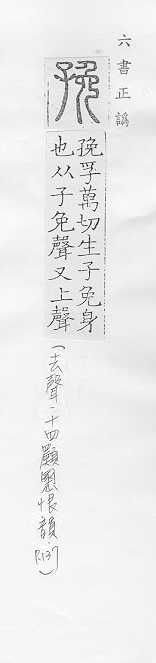 六書正譌
㝃
㝃孚萬切生子免身
也从子免聲又上聲
(去聲.十四願慁恨韻.P.137)